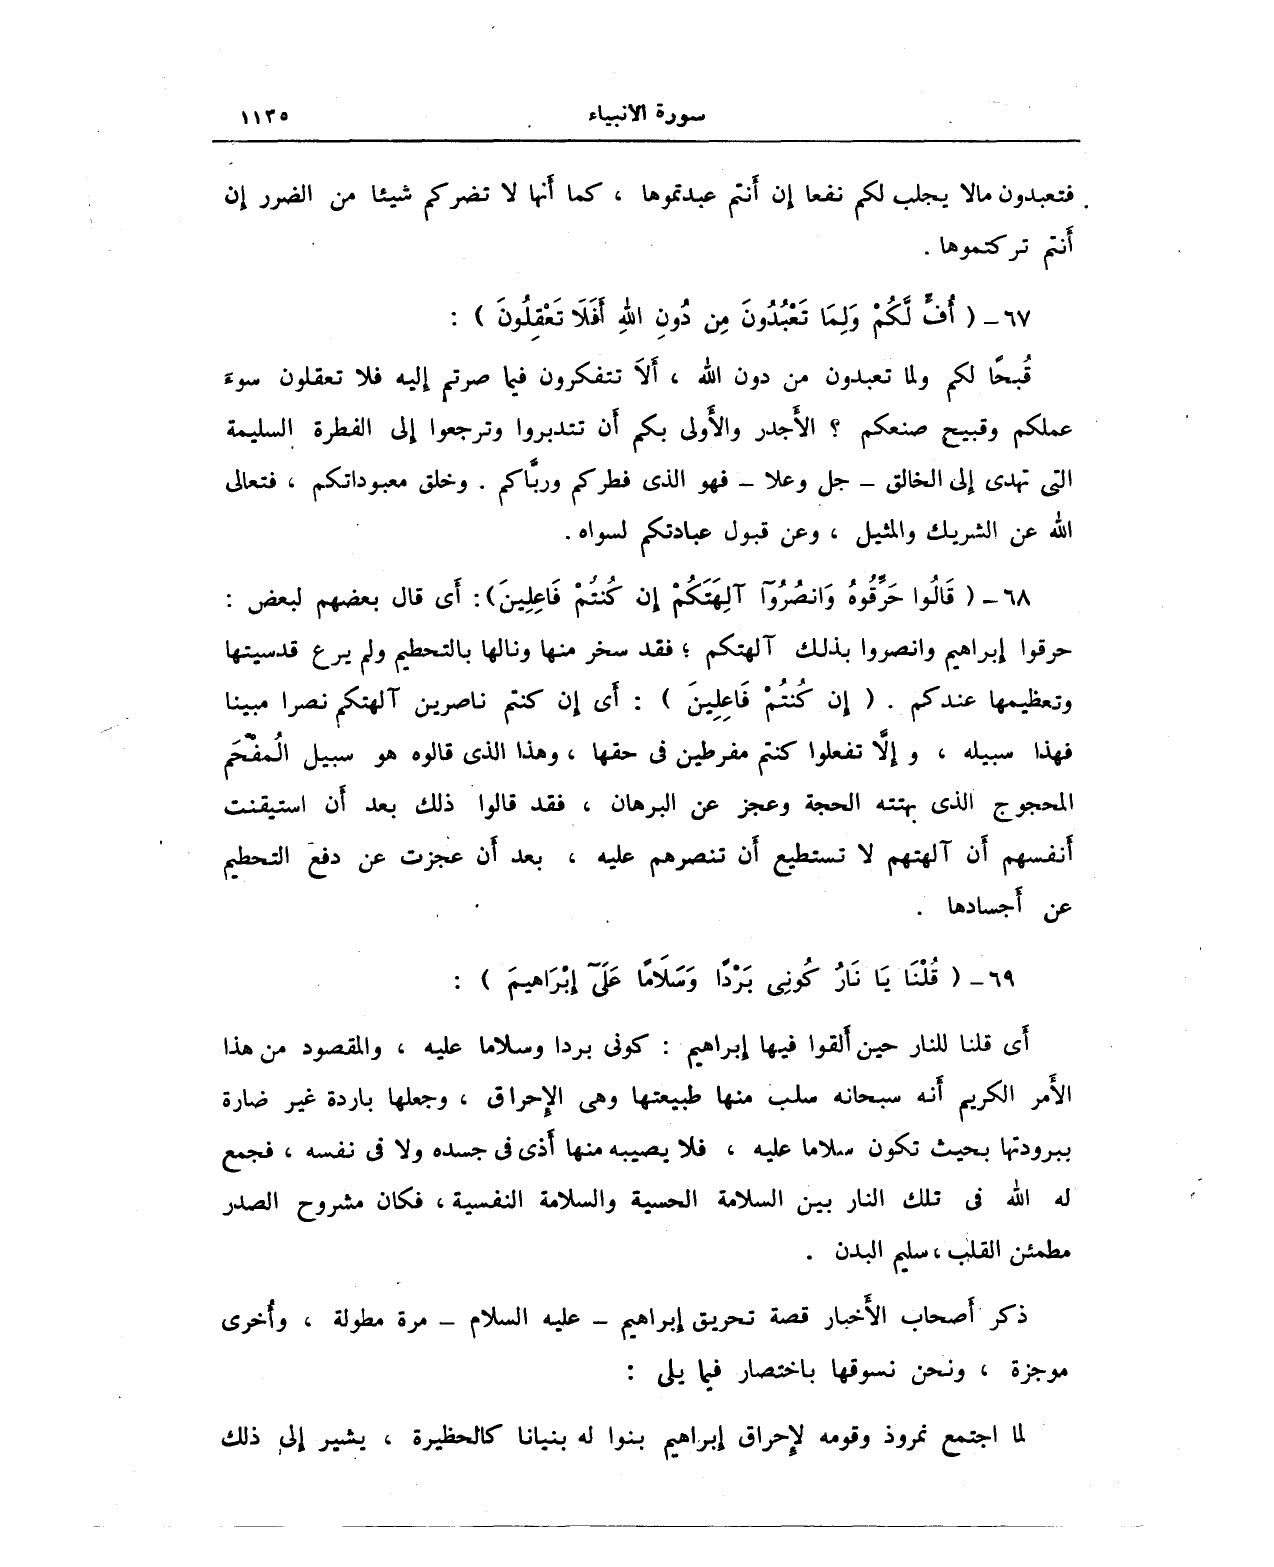 سورة الانبياء ١١٣٥
فتعبدون مالا يجلب لكم نفعا إن أَنتم عبدتموها ، كما أَنها لا تضركم شيئا من الضرر إن
أَنتم تركتموها .
٦٧ – ( أُفٍّ لَّكُمْ وَلِمَا تَعْبُدُونَ مِن دُونِ اللهِ أَفَلَا تَعْقِلُونَ ) :
قُبحًا لكم ولما تعبدون من دون الله ، أَلاَ تتفكرون فيما صرتم إليه فلا تعقلون سوءَ
عملكم وقبيح صنعكم ؟ الأَجدر والأَولى بكم أَن تتدبروا وترجعوا إلى الفطرة السليمة
التى تهدى إلى الخالق – جل وعلا – فهو الذى فطركم وربَّاكم . وخلق معبوداتكم ، فتعالى
الله عن الشريك والمثيل ، وعن قبول عبادتكم لسواه .
٦٨ – ( قَالُوا حَرِّقُوهُ وَانصُرُوٓا آلِهَتَكُمْ إِن كُنتُمْ فَاعِلِينَ ) : أَى قال بعضهم لبعض :
حرقوا إبراهيم وانصروا بذلك آلهتكم ؛ فقد سخر منها ونالها بالتحطيم ولم يرع قدسيتها
وتعظيمها عندكم . ( إِن كُنتُمْ فَاعِلِينَ ) : أَى إن كنتم ناصرين آلهتكم نصرا مبينا
فهذا سبيله ، و إلَّا تفعلوا كنتم مفرطين فى حقها ، وهذا الذى قالوه هو سبيل الُمفْحَم
المحجوج الذى بهتته الحجة وعجز عن البرهان ، فقد قالوا ذلك بعد أَن استيقنت
أَنفسهم أَن آلهتهم لا تستطيع أَن تنصرهم عليه ، بعد أَن عجزت عن دفع التحطيم
عن أَجسادها .
٦٩ – ( قُلْنَا يَا نَارُ كُونِى بَرْدًا وَسَلَامًا عَلَىٓ إِبْرَاهيمَ ) :
أَى قلنا للنار حين أَلقوا فيها إبراهيم : كونى بردا وسلاما عليه ، والمقصود من هذا
الأَمر الكريم أَنه سبحانه سلب منها طبيعتها وهى الإحراق ، وجعلها باردة غير ضارة
ببرودتها بحيث تكون سلاما عليه ، فلا يصيبه منها أَذى فى جسده ولا فى نفسه ، فجمع
له الله فى تلك النار بين السلامة الحسية والسلامة النفسية ، فكان مشروح الصدر
مطمئن القلب ، سليم البدن .
ذكر أَصحاب الأَخبار قصة تحريق إبراهيم – عليه السلام – مرة مطولة ، وأُخرى
موجزة ، ونحن نسوقها باختصار فيما يلى :
لما اجتمع نمروذ وقومه لإحراق إبراهيم بنوا له بنيانا كالحظيرة ، يشير إلى ذلك